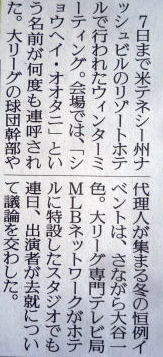 ７日まで米テネシー州ナ
ッシュビルのリゾートホテ
ルで行われたウィンターミ
ーティング。会場では、「シ
ョウヘイ・オオタニ」とい
う名前が何度も連呼され
た。大リーグの球団幹部や
代理人が集まる冬の恒例イ
ベントは、さながら大谷一
色。大リーグ専門テレビ局
ＭＬＢネットワークがホテ
ルに特設したスタジオでも
連日、出演者が去就につい
て議論を交わした。